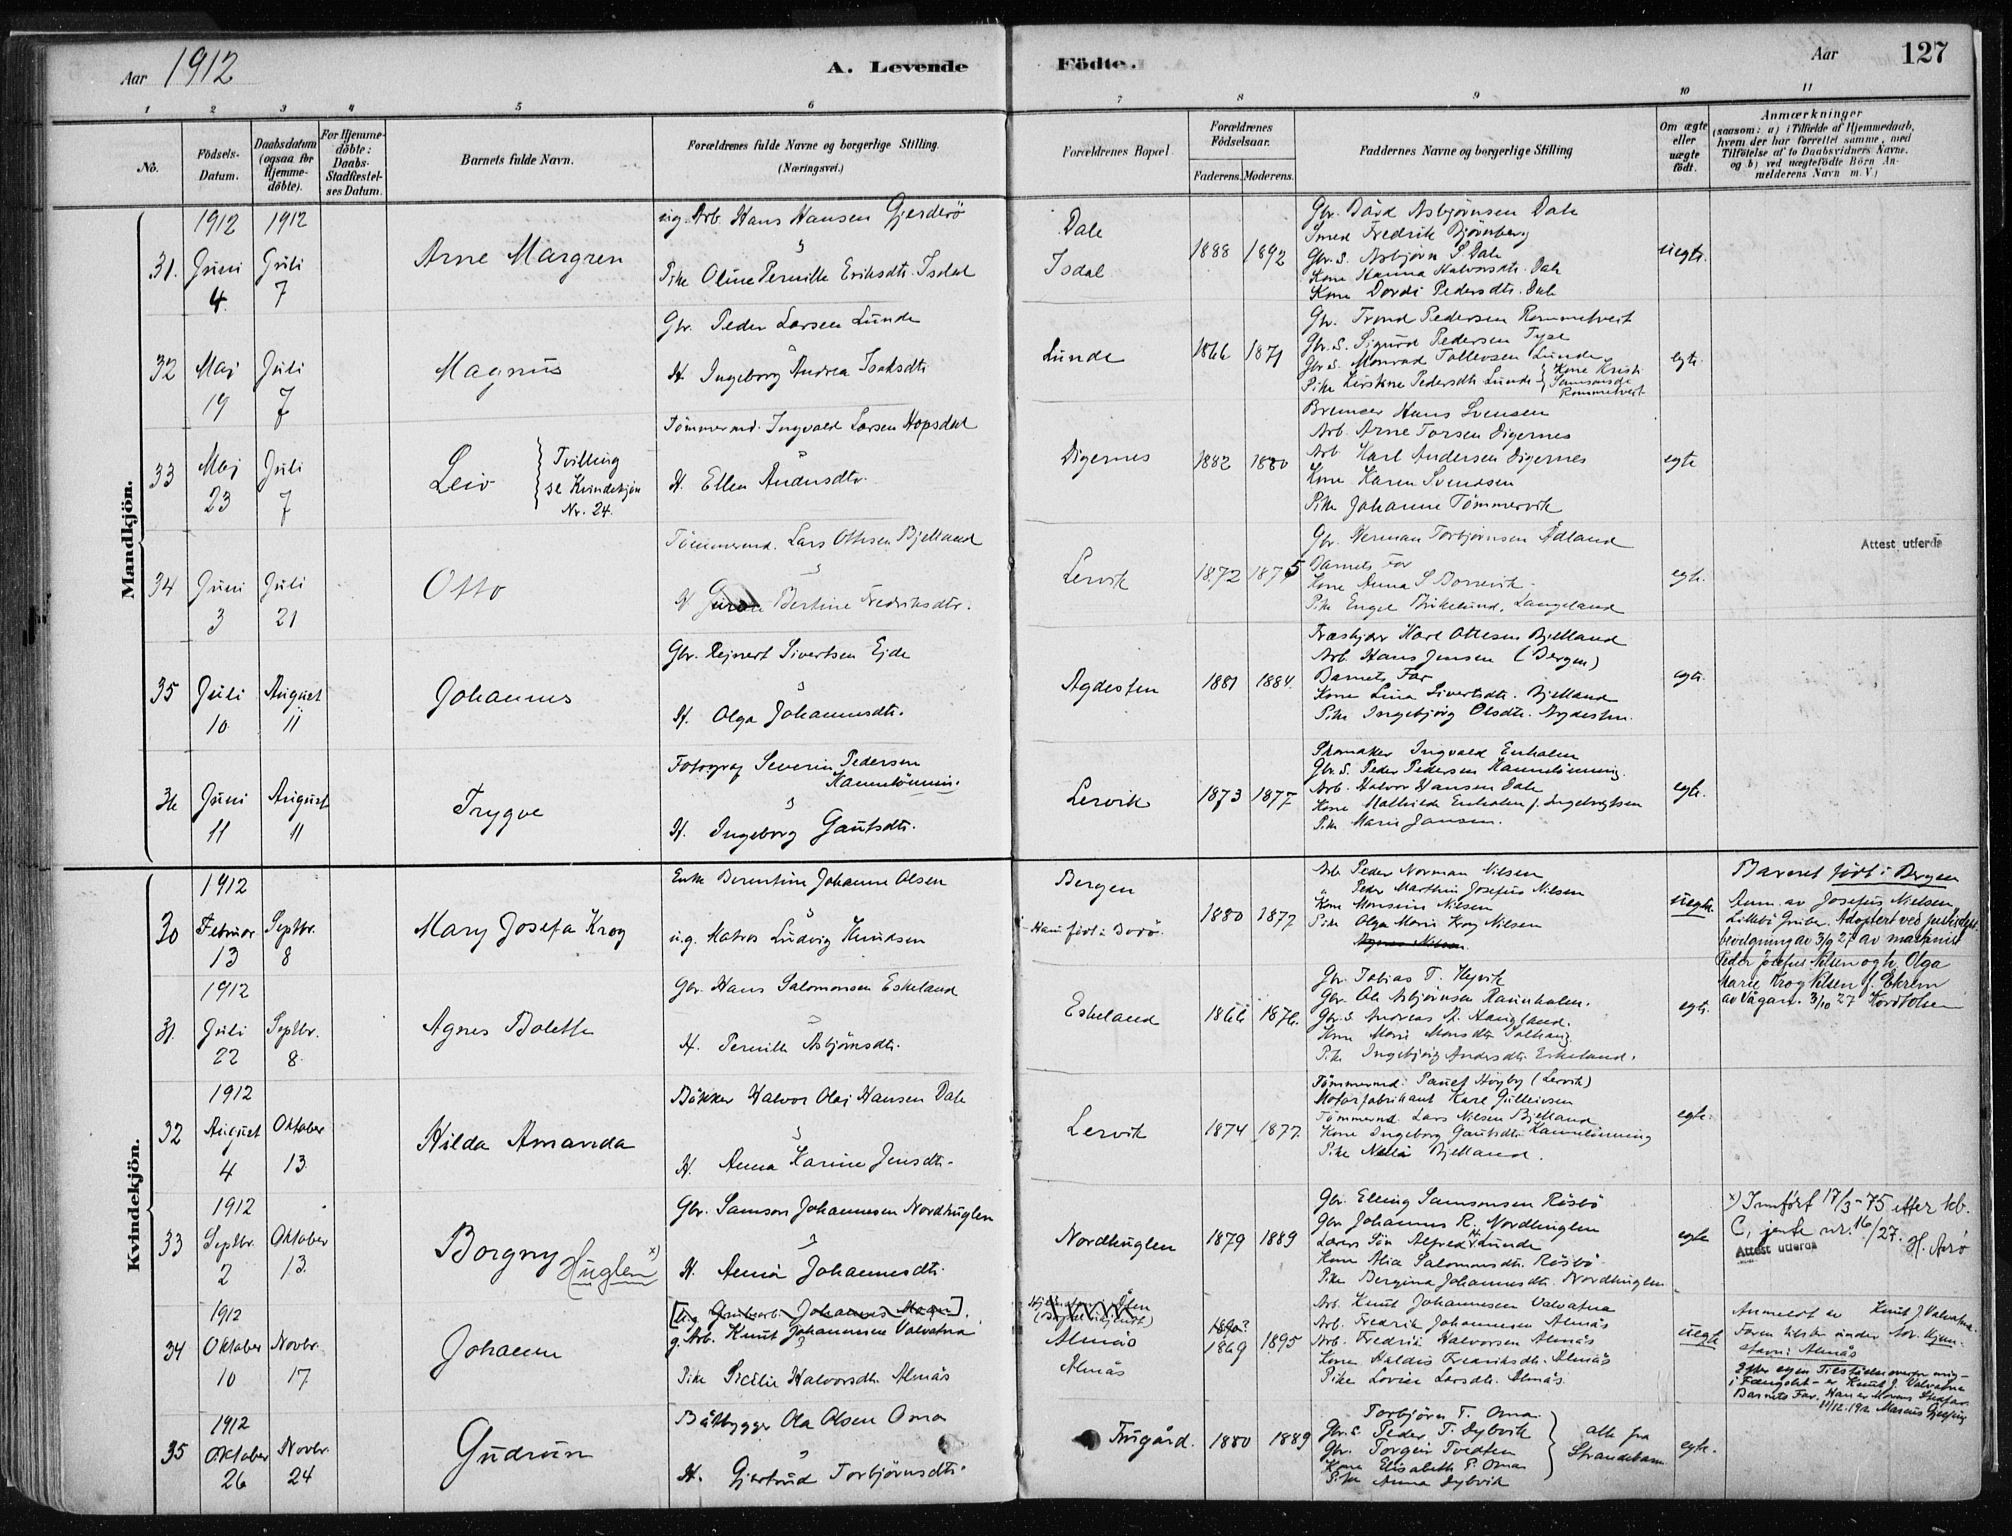 Aar 1912
A. Levende
Födte.
Aar
127
1 2 3 4 5 6 7 8 9 10 11
No.
Födsels-Datum.
Daabsdatum (ogsaa for Hjemme-döbte).
For Hjemme-döbte: Daabs-Stadfæstelses Datum.
Barnets fulde Navn.
Forældrenes fulde Navne og borgerlige Stilling. (Næringsvei.)
Forældrenes Bopæl.
Forældrenes Födselsaar.
Faderens. Moderens.
Faddernes Navne og borgerlige Stilling
Om ægte eller uægte födt.
Anmærkninger
(saasom: a) i Tilfælde af Hjemmedaab, hvem der har forrettet samme, med Tilföielse af to Daabsvidners Navne, og b) ved uægtefödte Börn Anmelderens Navn m. V.)
Mandkjön.
31. 1912 Juni 4. 1912 Juli 7
Arne Margren
ug. Arb. Hans Hansen Gjerderö
Pike Oline Pernille Eriksdtr. Isdal
Dale
Isdal
1888 1892
Gbr. Bård Asbjørnsen Dale
Smed Fredrik Bjørnberg
Gbr. S. Asbjørn S. Dale
Kone Hanna Halvorsdtr. Dale
Kone Dordi Pedersdtr. Dale
uegte.
32 Maj 19 Juli 7
Magnus
Gbr. Peder Larsen Lunde
H. Ingeborg Andrea Isaksdtr
Lunde
1866 1871
Gbr. Trond Pedersen Rommetveit
Gbr. S. Sigurd Pedersen Tyse
Gbr. S. Monrad Tollevsen Lunde
Pike Kirstine Pedersdtr Lunde
Kone Kristi Samsonsdtr Rommetveit
egte.
33 Maj 23 Juli 7
Leiv
Tvilling se Kvindekjön Nr. 24.
Tömmermd. Ingvald Larsen Hopsdal
H. Ellen Andersdtr.
Digernes
1882 1880
Bremser Hans Svensen
Arb. Arne Torsen Digernes
Arb Karl Andersen Digernes
Kone Karen Svendsen
Pike Johanne Tömmervik
egte
34 Juni 3 Juli 21
Otto
Tömmermd. Lars Ottesen Bjelland
H Bertine Fredriksdtr.
Lervik
1872 1875
Gbr. Herman Torbjørnsen Ådland
Barnets Far
Kone Anna S Borrevik
Pike Engel Birkelund, Langeland
egte.
Attest utferda
35 Juli 10 August 11
Johannes
Gbr. Rejnert Sivertsen Ejde
H. Olga Johannesdtr.
Agdesten
1881 1884.
Træskjær Karl Ottesen Bjelland
Arb Hans Jensen (Bergen)
Barnets Far
Kone Lina Sivertsdtr. Bjelland
Pike Ingebjörg Olsdtr. Agdesten.
egte.
36 Juni 11 August 11
Trygve
Fotograf Severin Pedersen Kannelönning.
H. Ingeborg Gautsdtr.
Lervik
1873 1877
Skomaker Ingvald Enholm
Gbr. S. Peder Pedersen Kannelönning.
Arb. Halvor Hansen Dale
Kone Mathilde Enholm f. Ingebrigtsen
Pike Marie Jansen.
egte.
Kvindekjön.
30 1912 Februar 13 Septbr. 8
Mary Josefa Krog
Enke Berentine Johanne Olsen
u.g. Matros Ludvig Knudsen
Bergen
Han født i Bodø.
1880 1877
Arb Peder Norman Nilsen
" Peder Marthin Josefus Nilsen
Kone Monsine Nilsen
Pike Olga Marie Krog Nilsen
Agnes Nilsen
uegte.
Barnet født i Bergen
Anm. av Josefus Nielsen
Lillebö Gruber. Adoptert ved justisdept.
bevilgning av 3/9 27 av maskinist
Peder Josefus Nilsen og h. Olga
Marie Krog Nilsen f. Ekrem
av Vågan. 3/10 27 Kordtolsen
31. 1912 Juli 22 Septbr. 8.
Agnes Bolette
Gbr. Hans Salomonsen Eskeland
H. Pernille Asbjørnsdtr.
Eskeland
1866 1876.
Gbr. Tobias T. Hejvik
Gbr. Ole Asbjørnsen Ravnholm.
Gbr. S Andreas A. Haugland.
Kone Marie Monsdtr. Solhaug
Pike Ingebjörg Andersdtr. Eskeland.
egte.
32 1912 August 4 Oktober 13.
Hilda Amanda
Båkker Halvor Olaj Hansen Dale
H. Anna Karine Jensdtr.
Lervik
1874 1877.
Tömmermd. Paul Högby (Lervik)
Motorfabrikant Karl Gulleivsen
Tömmermd Lars Nilsen Bjelland
Kone Ingeborg Gautsdtr Kannelönning
Pike Nella Bjelland.
egte.
33 1912 Septbr. 2 Oktober 13.
Borgny Huglen x)
Gbr. Samson Johannesen Nordhuglen
H. Anna Johannesdtr.
Nordhuglen
1879 1889
Gbr. Elling Samsonsen Røsbö
Gbr Johannes R. Nordhuglen
Lærer Tön Alfred Lunde
Kone Alia Salomonsdtr. Røsbö
Pike Bergina Johannesdtr. Nordhuglen
egte
x) Innført 17/3-75 etter kb. C, jente nr. 16/27. H. Arö
Attest utferda
34 1912 Oktober 10 Novbr. 17
Johanne
[u.g. Grubearb. Johannes Moen].
g. Arb. Knut Johannesen Valvatna
Pike Sicilie Halvorsdtr. Almås
Almås
Almås
1869 1895
Arb. Knut Johannesen Valvatna
Arb. Fredrik Johannesen Almås
Arb. Fredrik Halvorsen Almås
Kone Haldis Fredriksdtr. Almås
Pike Lovise Larsdtr. Almås
uegte
Anmeldt av Knut J. Valvatna.
Almås
Barnets Far.
35 1912 Oktober 26 Novbr. 24
Gudrun
Båtbygger Ola Olsen Oma
H. Gjertrud Torbjörnsdtr.
Frugård.
1880 1889
Torbjørn T. Oma.
Gbr. S. Peder T. Dybvik
Gbr. Torgeir Tvedten
Kone Elisabeth P. Oma
Pike Anna Dybvik
alle fra Strandebarm
egte.